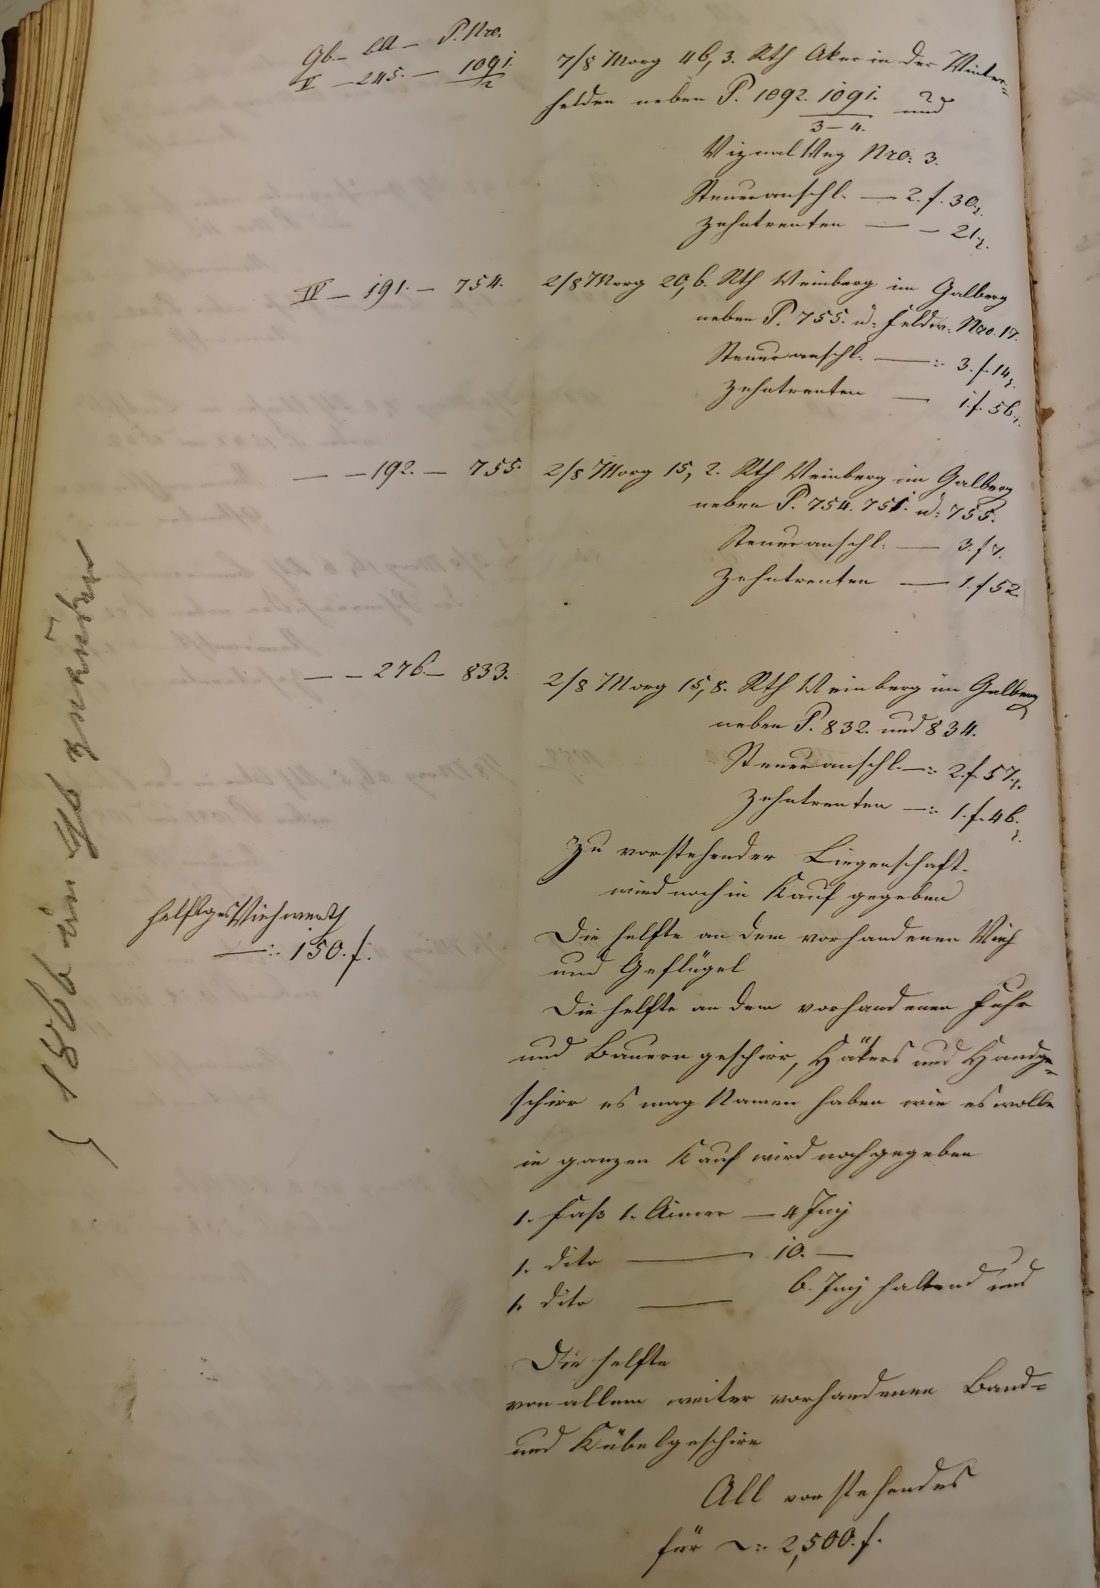 Gb. — Bll — P. Nro.
V — 245. — 1091/2
7/8 Morg 46,3. Rth Aker in der Winter=
halden neben P. 1092. 1091. und
3—4.
Vizinal Weg Nro: 3.
Steueranschl. — 2. f. 30 x.
Zehntrenten — — 21 x.
IV — 191. — 754.
2/8 Morg 20,6. Rth Weinberg im Galberg
neben P. 755. u. Feldw. Nro. 17.
Steueranschl. —: 3. f. 14 x.
Zehntrenten — 1. f. 56 x.
— — 192. — 755.
2/8 Morg 15,2. Rth Weinberg im Galberg
neben P. 754. 756. u: 755.
Steueranschl. — 3. f 7.
Zehntrenten — 1. f 52
— — 276 — 833.
2/8 Morg 15,8. Rth Weinberg im Galberg
neben P. 832. und 834.
Steueranschl. —: 2. f. 57 x.
Zehntrenten —: 1. f. 46. x.
Zu vorstehender Liegenschaft
wird noch in Kauf gegeben
helftges Viehwerth
—: 150. f.
Die helfte an dem vorhandenen Vieh
und Geflügel
Die helfte an dem vorhandenen Fuhr
und Bauerngeschirr, Häkers und Handge=
schirr es mag Namen haben wie es wolle
in ganzen Kauf wird noch gegeben
1. Faß 1. Aimer — 4 Imj
1. dito — 10. —
1. dito — 6. Imj haltend und
Die helfte
von allem weiter vorhandenen Band=
und Kübelgeschirr
All vorstehendes
für —: 2,500. f.
1866 im Gb